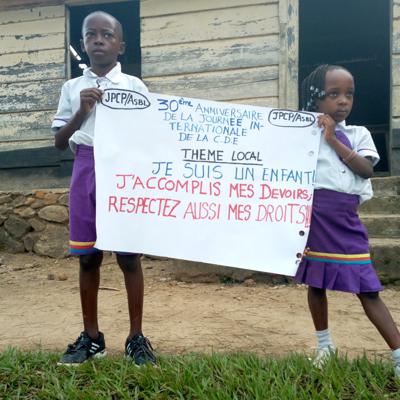 JPCP/ASBL
30ème ANNIVERSAIRE
JPCP/ASBL
DE LA JOURNÉE IN-
TERNATIONALE
DE LA C.D.E
THEME LOCAL
JE SUIS UN ENFANT!
J'ACCOMPLIS MES DEVOIRS,
RESPECTEZ AUSSI MES DROITS!